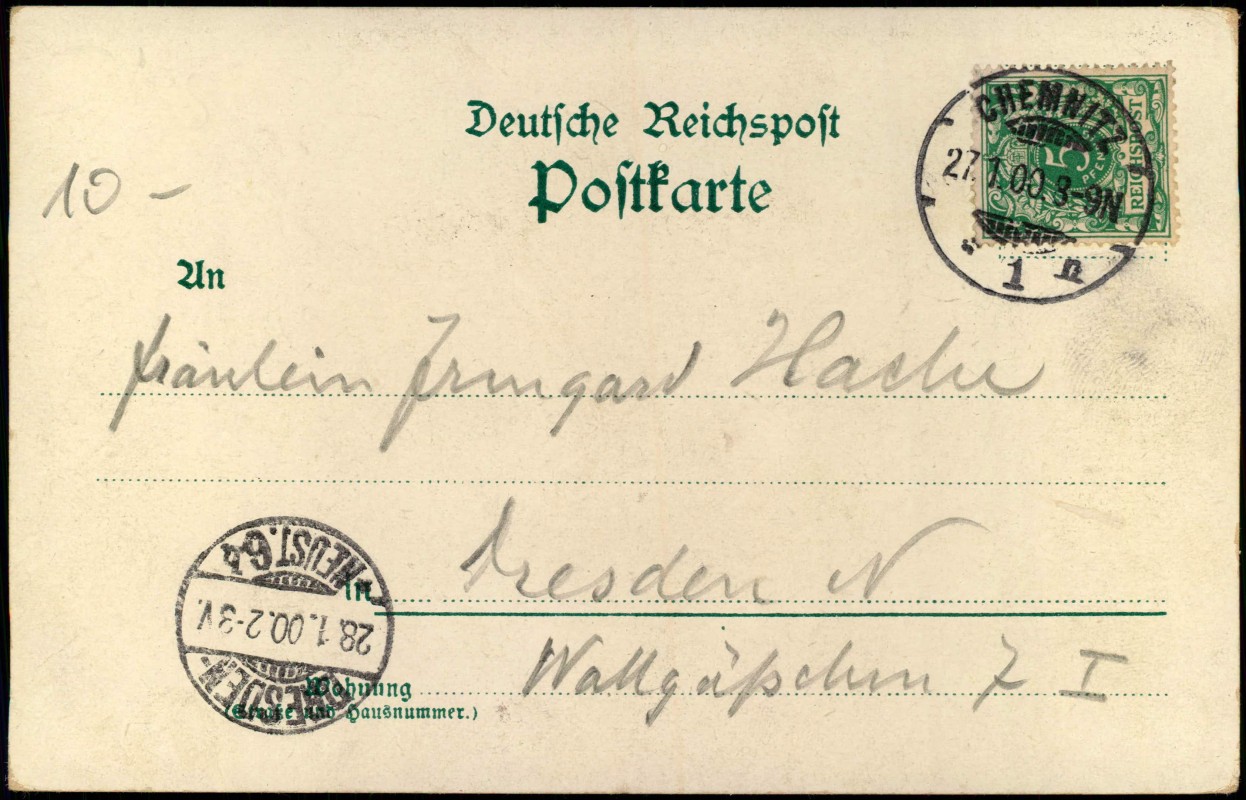 Deutsche Reichspost
Postkarte
CHEMNITZ
27.1.00.8-9N
1 n
5
PFENNIG
REICHSPOST
10 -
An
Fräulein Irmgard Hache
in Dresden N
Wohnung Wallgäßchen 7 I
(Straße und Hausnummer.)
DRESDEN-
28.1.00.2-3V.
NEUST. 6a